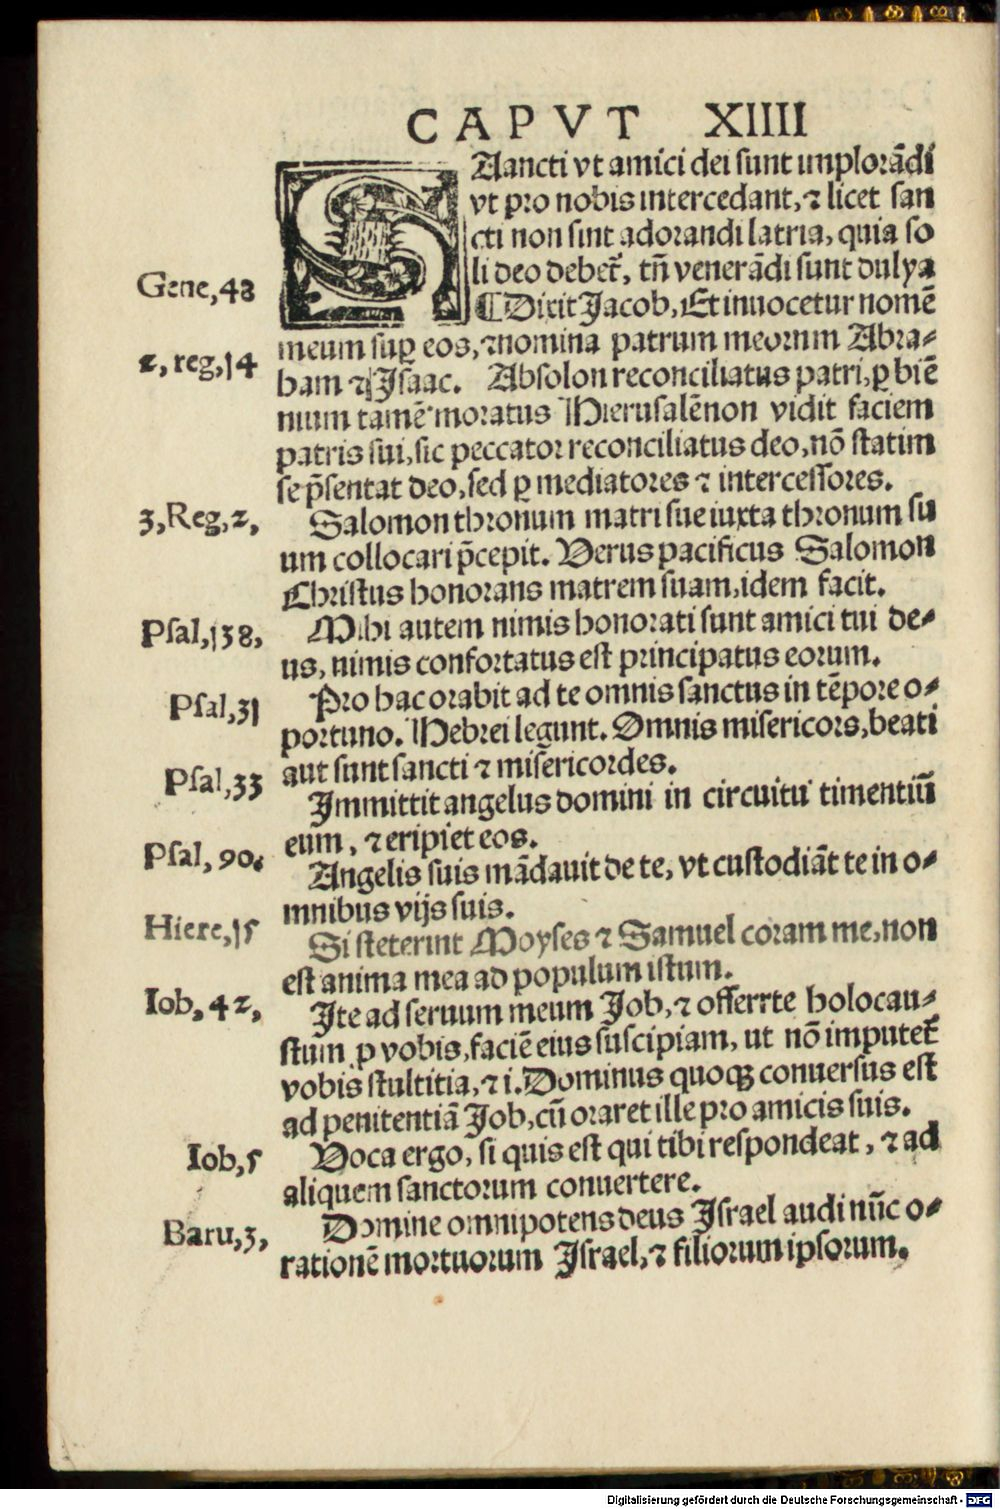 CAPVT XIIII
SAancti vt amici dei sunt implorādi
vt pro nobis intercedant, ⁊ licet san
cti non sint adorandi latria, quia so
li deo debet᷒, tn̄ venerādi sunt dulya
Gene, 48
¶ Dixit Jacob, Et inuocetur nomē
meum suꝑ eos, ⁊ nomina patrum meornm Abra⸗
2, reg, 14
ham ⁊ Jsaac. Absolon reconciliatus patri, ꝑ biē
nium tamē moratus Hierusalē non vidit faciem
patris sui, sic peccator reconciliatus deo, nō statim
se p̄sentat deo, sed ꝑ mediatores ⁊ intercessores.
3, Reg, 2,
Salomon thronum matri sue iuxta thronum su
um collocari p̄cepit. Verus pacificus Salomon
Christus honorans matrem suam, idem facit.
Psal, 138,
Mihi autem nimis honorati sunt amici tui de⸗
us, nimis confortatus est principatus eorum.
Psal, 31
Pro hac orabit ad te omnis sanctus in tēpore o⸗
portuno. Hebrei legunt. Omnis misericors, beati
aut sunt sancti ⁊ misericordes.
Psal, 33
Jmmittit angelus domini in circuitu timentiū
eum, ⁊ eripiet eos.
Psal, 90.
Angelis suis mādauit de te, vt custodiāt te in o⸗
mnibus vijs suis.
Hiere, 15
Si steterint Moyses ⁊ Samuel coram me, non
est anima mea ad populum istum.
Iob, 42,
Jte ad seruum meum Job, ⁊ offerrte holocau⸗
stum ꝓ vobis, faciē eius suscipiam, ut nō imputet᷒
vobis stultitia, ⁊ i. Dominus quoqꝫ conuersus est
ad penitentiā Job, cū oraret ille pro amicis suis.
Iob, 5
Voca ergo, si quis est qui tibi respondeat, ⁊ ad
aliquem sanctorum conuertere.
Baru, 3,
Domine omnipotens deus Jsrael audi nūc o⸗
rationē mortuorum Jsrael, ⁊ filiorum ipsorum.
Digitalisierung gefördert durch die Deutsche Forschungsgemeinschaft - DFG